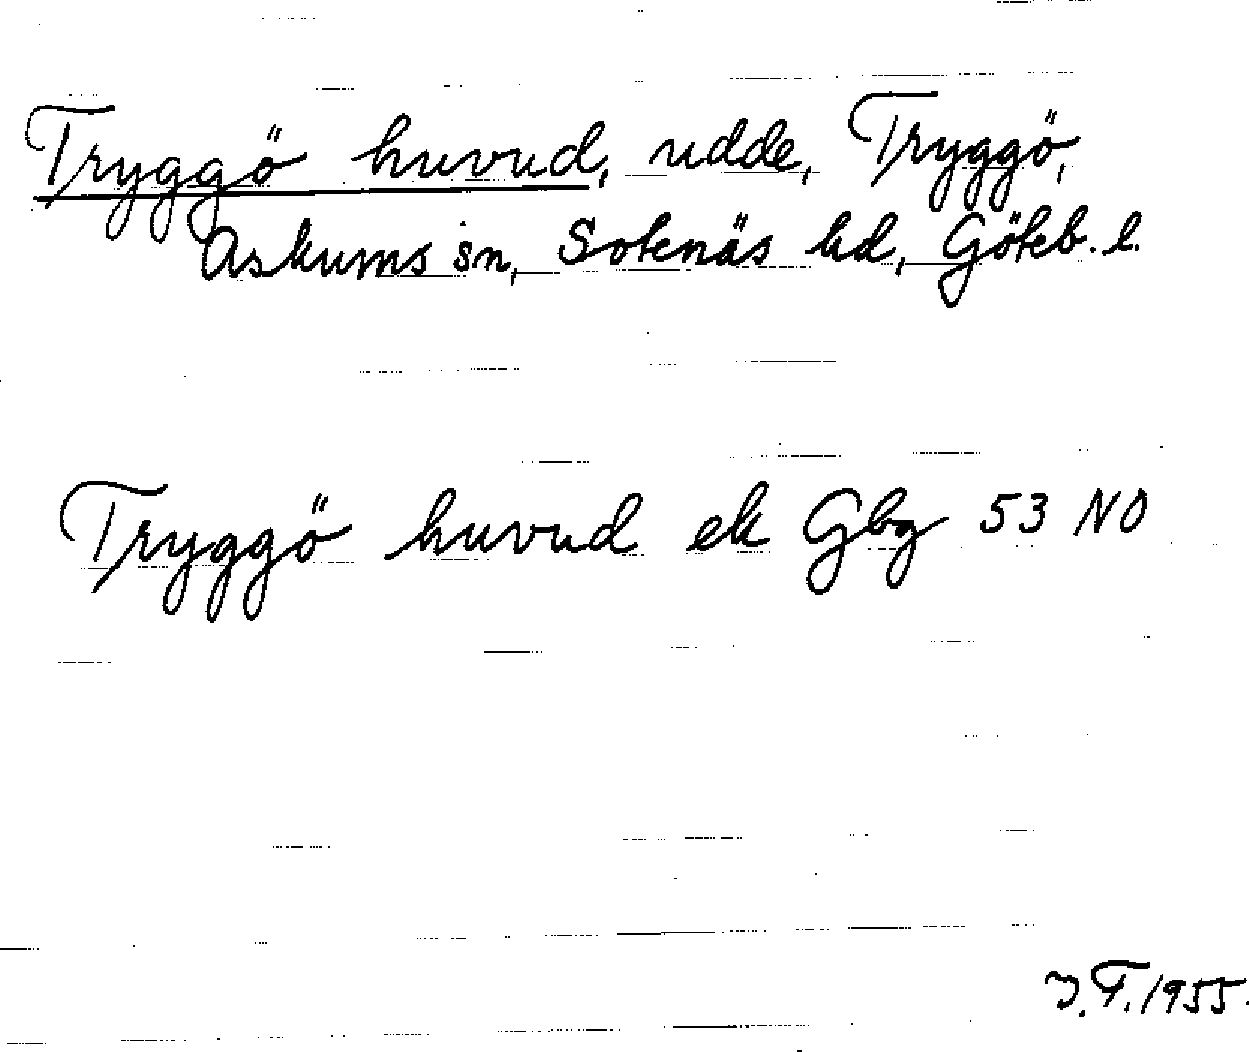 Tryggö huvud, udde, Tryggö,
Askums sn, Sotenäs hd, Göteb. l.
Tryggö huvud ek Gbg 53 NO
J.T. 1955.